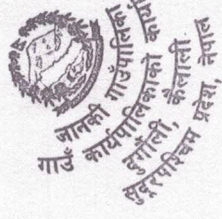 जानकी गाउँपालिका
गाउँ कार्यपालिकाको कार्या
दुर्गौली, कैलाली
सुदूरपश्चिम प्रदेश, नेपाल